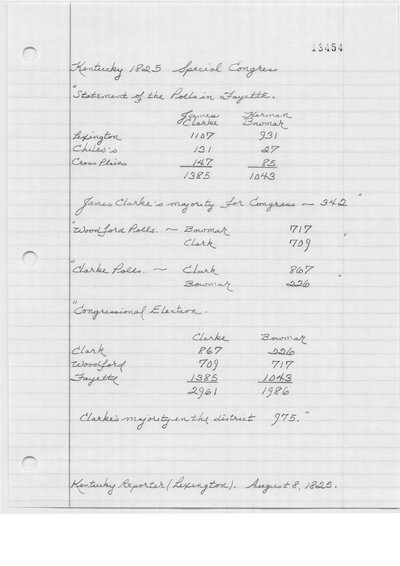 13454
Kentucky 1825 Special Congress
"Statement of the Polls in Fayette.
James Herman
Clarke Bowmar
Lexington 1107 931
Chiles's 131 27
Cross Plains 147 85
1385 1043
James Clarke's majority for Congress — 342"
"Woodford Polls. — Bowmar 717
Clark 709 "
"Clarke Polls. — Clark 867 "
Bowmar 226
"Congressional Election.
Clarke Bowmar
Clark 867 226
Woodford 709 717
Fayette 1385 1043
2961 1986
Clarke's majority in the district 975."
Kentucky Reporter (Lexington). August 8, 1825.